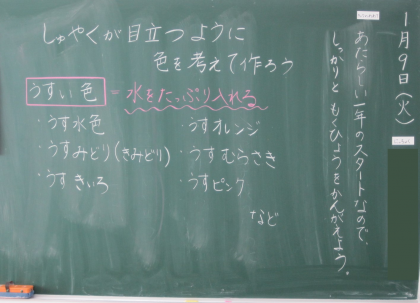 1月9日(火)
あたらしい一年のスタートなので、
しっかりと もくひょうをかんがえよう。
しゅやくが目立つように
色を考えて作ろう
うすい色 = 水をたっぷり入れる
・うす水色
・うすみどり(きみどり)
・うすきいろ
・うすオレンジ
・うすむらさき
・うすピンク
など